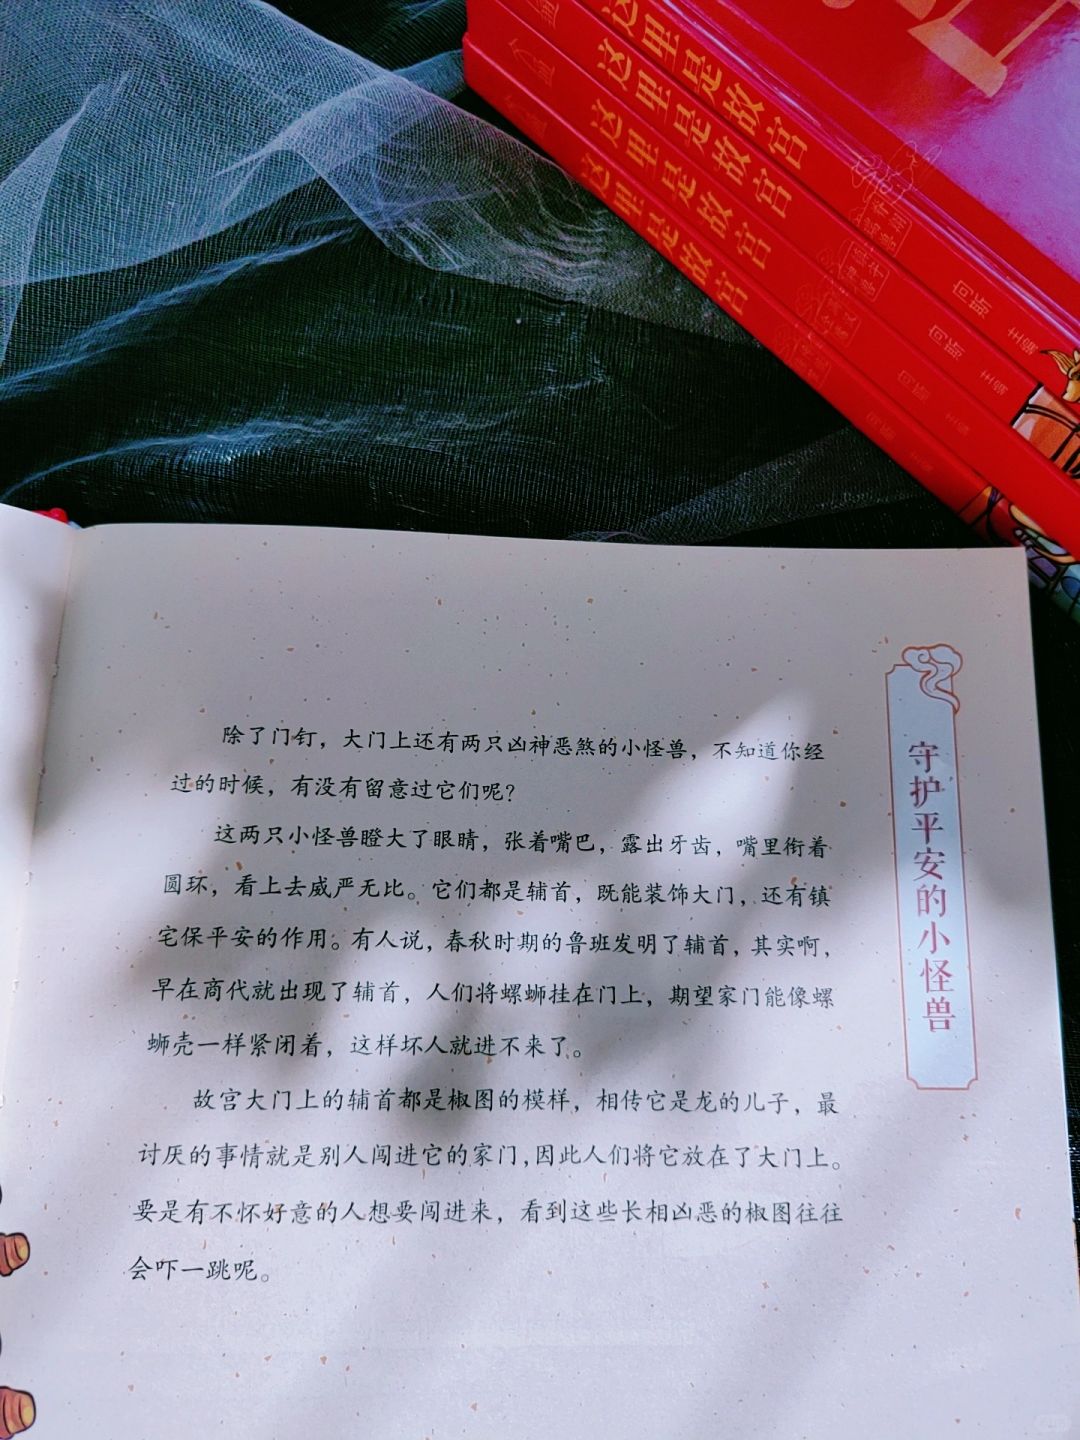 这里是故宫
向斯 主编
这里是故宫
向斯 主编
这里是故宫
向斯 主编
这里是故宫
向斯 主编
守护平安的小怪兽
除了门钉，大门上还有两只凶神恶煞的小怪兽，不知道你经
过的时候，有没有留意过它们呢？
这两只小怪兽瞪大了眼睛，张着嘴巴，露出牙齿，嘴里衔着
圆环，看上去威严无比。它们都是辅首，既能装饰大门，还有镇
宅保平安的作用。有人说，春秋时期的鲁班发明了辅首，其实啊，
早在商代就出现了辅首，人们将螺蛳挂在门上，期望家门能像螺
蛳壳一样紧闭着，这样坏人就进不来了。
故宫大门上的辅首都是椒图的模样，相传它是龙的儿子，最
讨厌的事情就是别人闯进它的家门，因此人们将它放在了大门上。
要是有不怀好意的人想要闯进来，看到这些长相凶恶的椒图往往
会吓一跳呢。